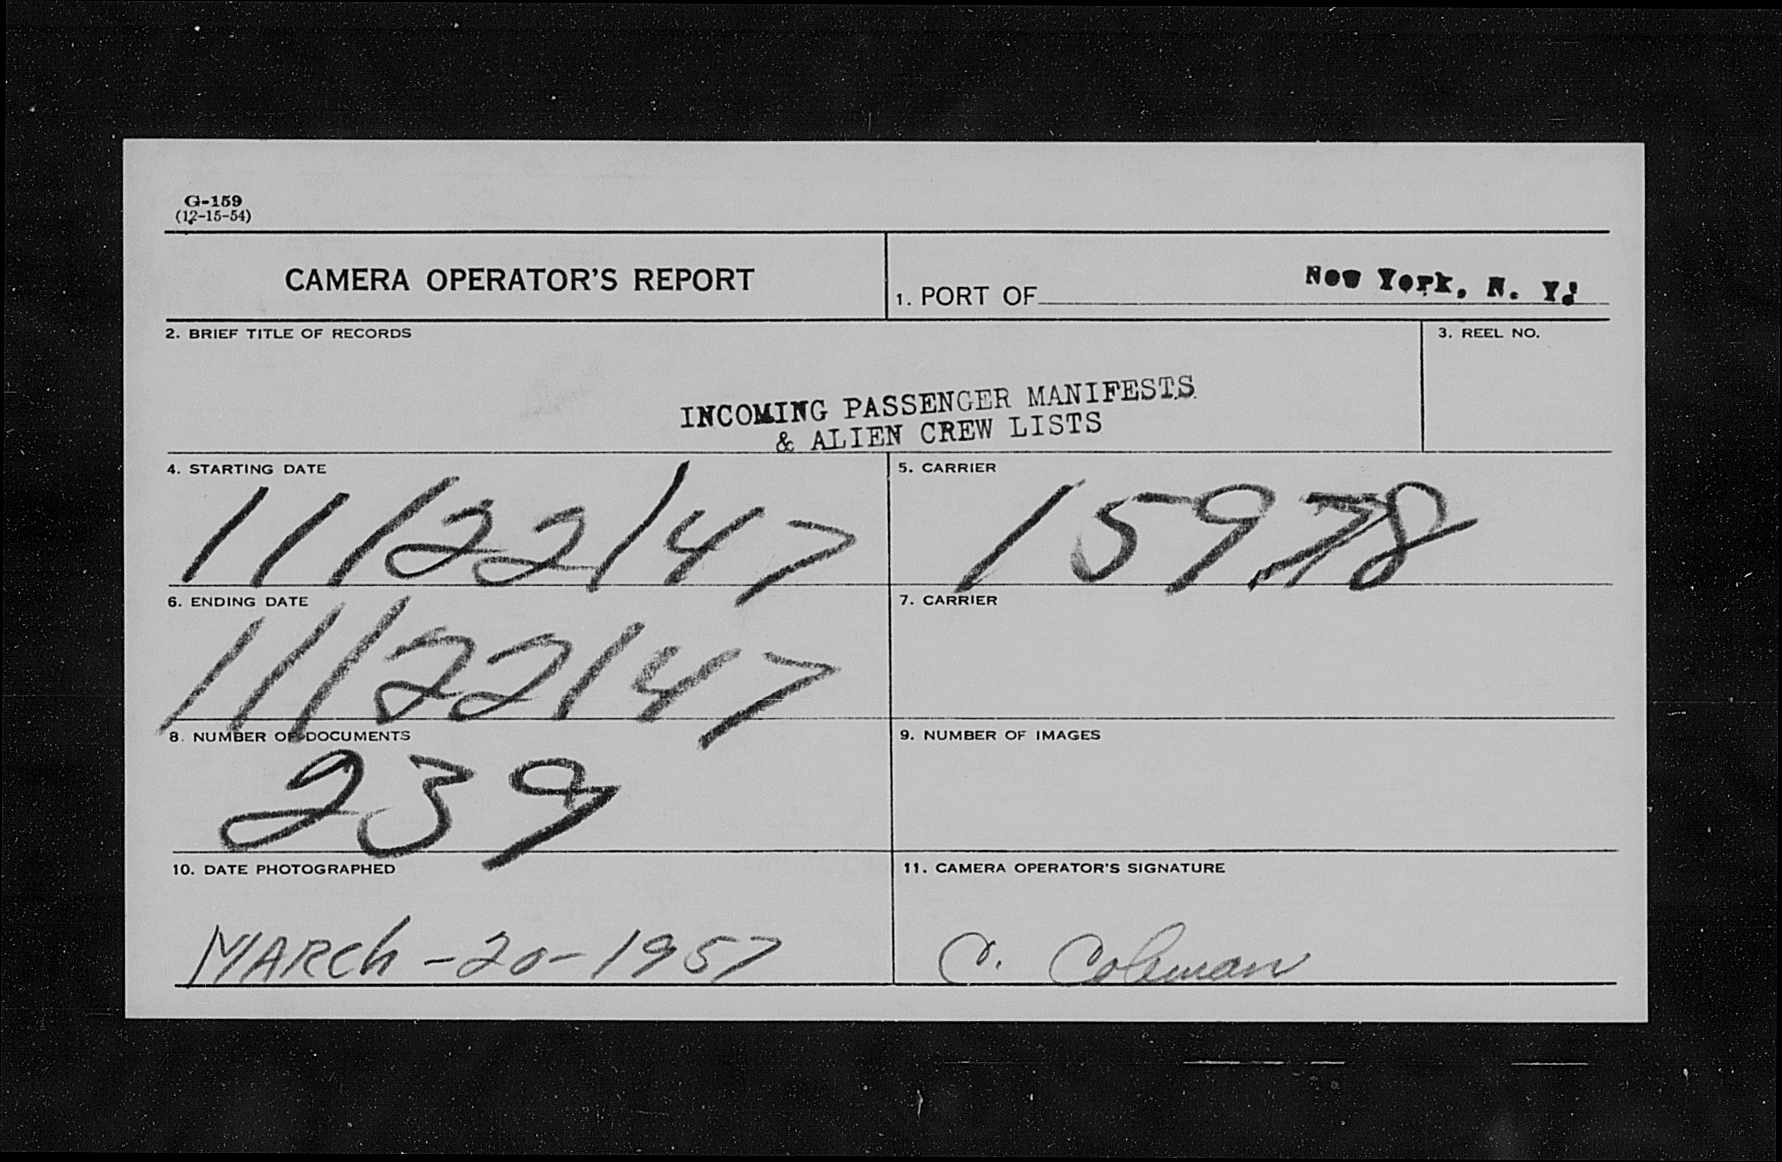 G-159
(12-15-54)
CAMERA OPERATOR'S REPORT
1. PORT OF New York, N. Y.
2. BRIEF TITLE OF RECORDS
3. REEL NO.
INCOMING PASSENGER MANIFESTS
& ALIEN CREW LISTS
4. STARTING DATE
5. CARRIER
11/22/47
15978
6. ENDING DATE
7. CARRIER
11/22/47
8. NUMBER OF DOCUMENTS
9. NUMBER OF IMAGES
239
10. DATE PHOTOGRAPHED
11. CAMERA OPERATOR'S SIGNATURE
MARCh-20-1957
C. Coleman